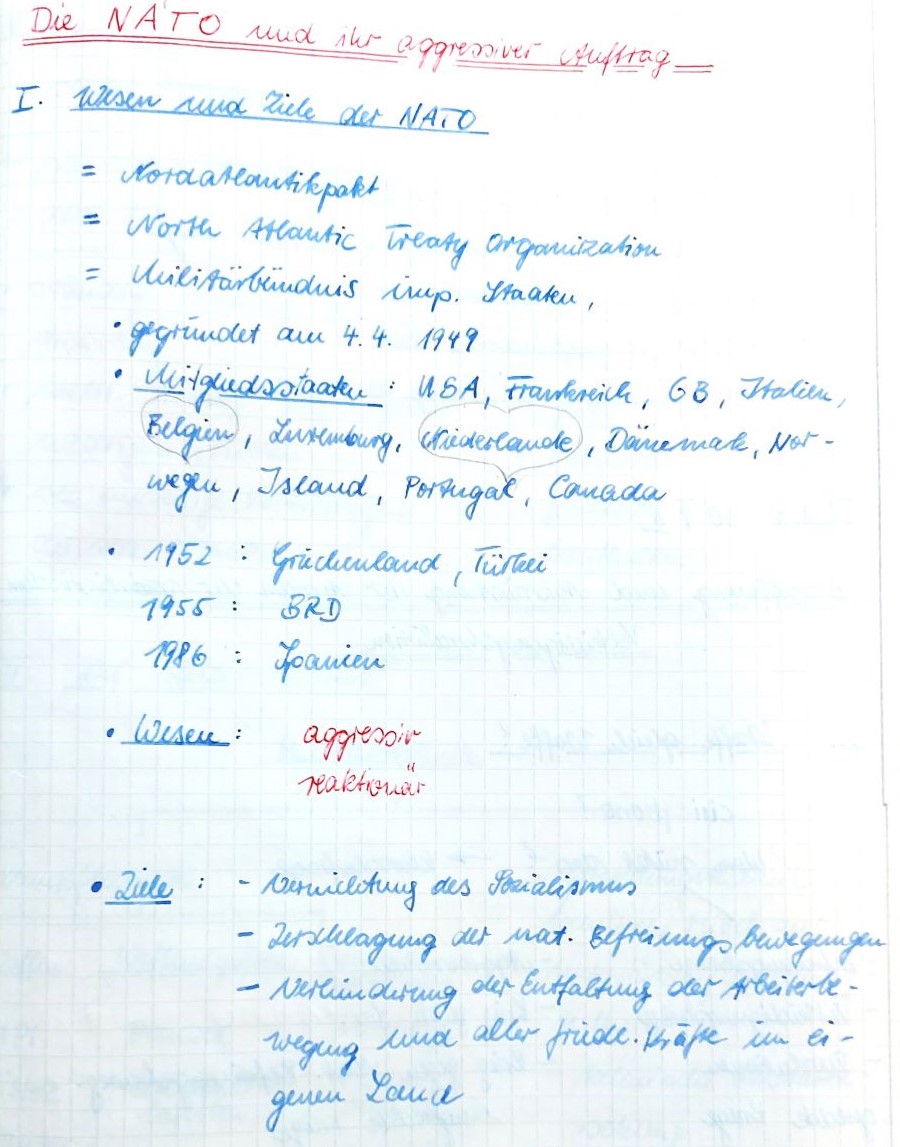 Die NATO und ihr aggressiver Auftrag
I. Wesen und Ziele der NATO
= Nordatlantikpakt
= North Atlantic Treaty Organization
= Militärbündnis imp. Staaten,
• gegründet am 4.4. 1949
• Mitgliedsstaaten: USA, Frankreich, GB, Italien,
Belgien, Luxemburg, Niederlande, Dänemark, Nor-
wegen, Island, Portugal, Canada
• 1952 : Griechenland, Türkei
1955 : BRD
1986 : Spanien
• Wesen: aggressiv
reaktionär
• Ziele: - Vernichtung des Sozialismus
- Zerschlagung der nat. Befreiungsbewegungen
- Verhinderung der Entfaltung der Arbeiterbe-
wegung und aller friedl. Kräfte im ei-
genen Land